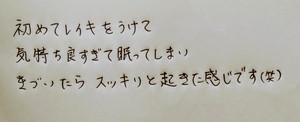 初めてレイキをうけて
気持ち良すぎて眠ってしまい
きづいたら スッキリと起きた感じです(笑)